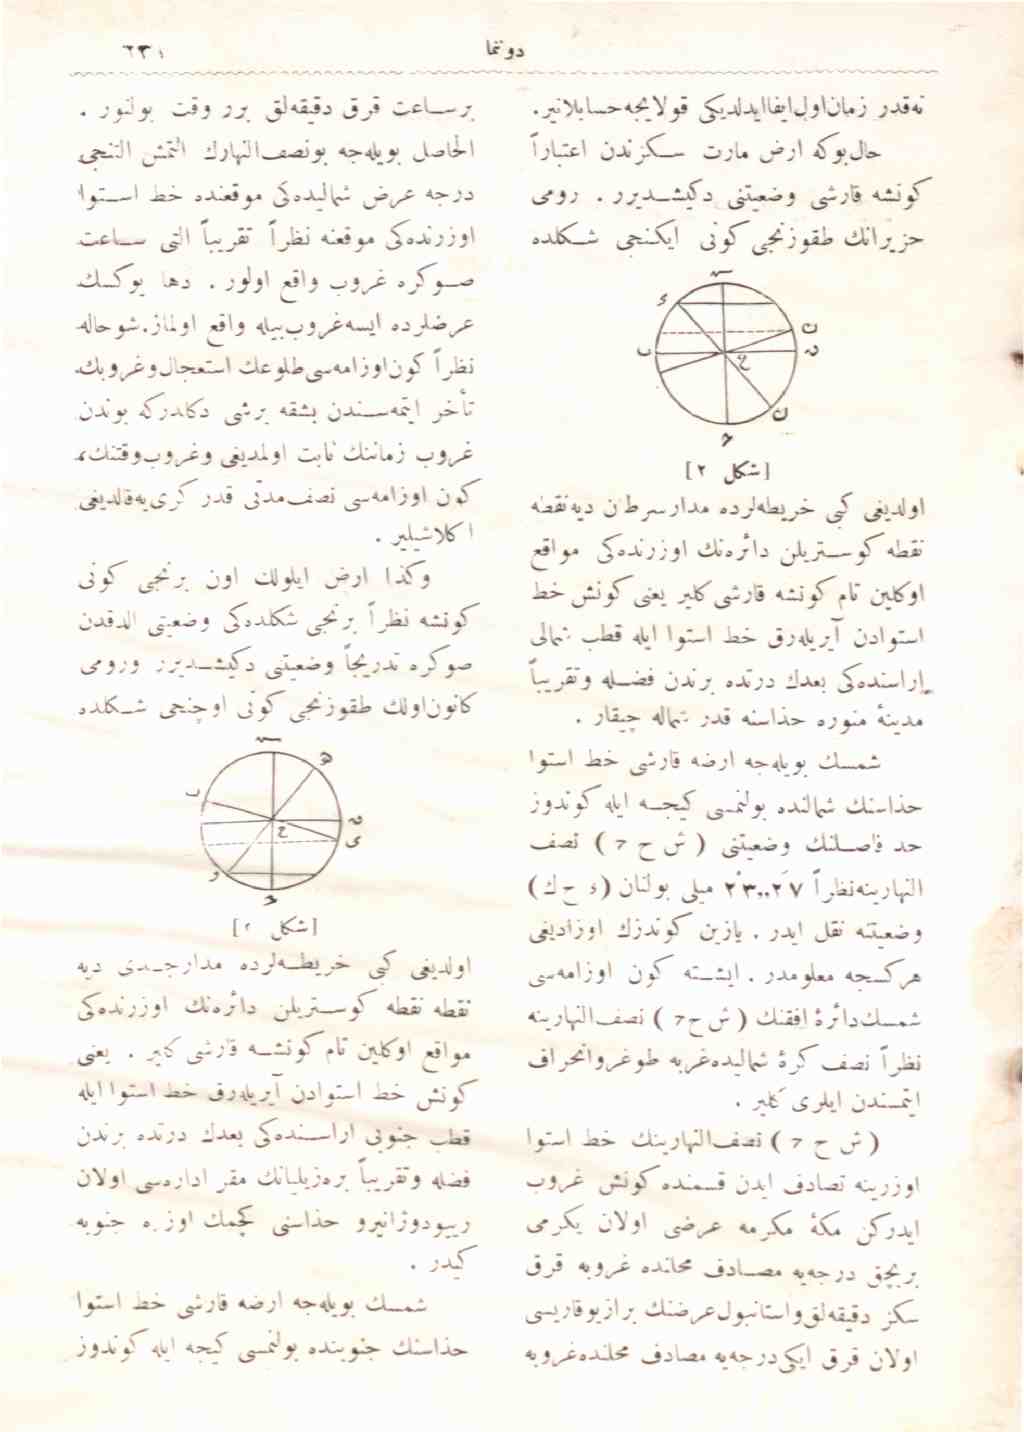 دوننما
٦٣١
نه قدر زمان اول ايفا ايدلديكى قولايجه حسابلانير.
حال بوكه ارض مارت سكزندن اعتباراً
كونشه قارشى وضعيتنى دكيشديرر . رومى
حزيرانك طقوزنجى كونى ايكنجى شكلده
[شكل ٢]
اولديغى كبى خريطه لرده مدار سرطان ديه نقطه
نقطه كوستريلن دائره نك اوزرنده كى مواقع
اوكلين تام كونشه قارشى كلير يعنى كونش خط
استوادن آيريله رق خط استوا ايله قطب شمالى
اراسنده كى بعدك درتده برندن فضله و تقريباً
مدينهٔ منوره حذاسنه قدر شماله چيقار .
شمسك بويله جه ارضه قارشى خط استوا
حذاسنك شمالنده بولنمسى كيجه ايله كوندوز
حد فاصلنك وضعيتنى ( ش ح ح ) نصف
النهارينه نظراً ٢٣,,٢٧ ميلى بولنان (ء ح ك)
وضعيتنه نقل ايدر . يازين كوندزك اوزاديغى
هركسجه معلومدر . ايشته كون اوزامه سى
شمسك دائرهٔ افقنك (ش ح ح) نصف النهارينه
نظراً نصف كرهٔ شماليده غربه طوغرو انحراف
ايتمسندن ايلرى كلير .
(ش ح ح) نصف النهارينك خط استوا
اوزرينه تصادف ايدن قسمنده كونش غروب
ايدركن مكهٔ مكرمه عرضى اولان يكرمى
بربچق درجه يه مصادف محلنده غروبه قرق
سكز دقيقه لق و استانبول عرضنك براز يوقاريسى
اولان قرق ايكى درجه يه مصادف محلنده غروبه
برساعت قرق دقيقه لق برر وقت بولنور .
الحاصل بويله جه بو نصف النهارك التمش التنجى
درجه عرض شماليده كى موقعنده خط استوا
اوزرنده كى موقعنه نظراً تقريباً التى ساعت
صوكره غروب واقع اولور . دها يوكسك
عرضلرده ايسه غروب بيله واقع اولماز. شو حاله
نظراً كون اوزامه سى طلوعك استعجال و غروبك
تأخر ايتمه سندن بشقه برشى دكلدركه بوندن
غروب زماننك ثابت اولمديغى و غروب وقتنك
كون اوزامه سى نصف مدتى قدر كرى يه قالديغى
اكلاشيلير .
وكذا ارض ايلولك اون برنجى كونى
كونشه نظراً برنجى شكلده كى وضعيتى الدقدن
صوكره تدريجاً وضعيتنى دكيشديرر و رومى
كانون اولك طقوزنجى كونى اوچنجى شكلده
[شكل ]
اولديغى كبى خريطه لرده مدار جدى ديه
نقطه نقطه كوستريلن دائره نك اوزرنده كى
مواقع اوكلين تام كونشه قارشى كلير . يعنى
كونش خط استوادن آيريله رق خط استوا ايله
قطب جنوبى اراسنده كى بعدك درتده برندن
فضله و تقريباً بره زيليانك مقر اداره سى اولان
رييودوژانيرو حذاسنى كچمك اوزره جنوبه
كيدر .
شمسك بويله جه ارضه قارشى خط استوا
حذاسنك جنوبنده بولنمسى كيجه ايله كوندوز